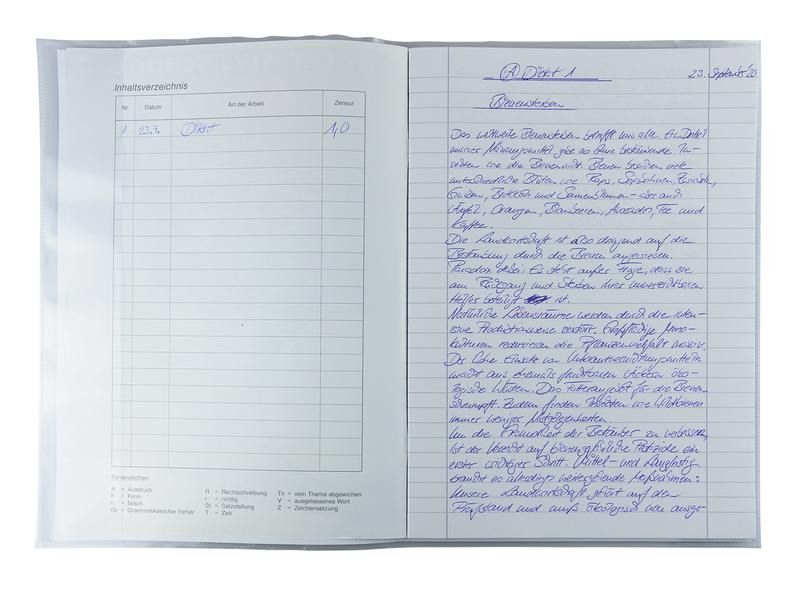 Inhaltsverzeichnis
Nr. Datum Art der Arbeit Zensur
1 23.9. Diktat 1,0
Fehlerzeichen
A = Ausdruck
F = Form
f = falsch
Gr = Grammatikalischer Fehler
R = Rechtschreibung
r = richtig
St = Satzstellung
T = Zeit
Th = vom Thema abgewichen
V = ausgelassenes Wort
Z = Zeichensetzung
A Diktat 1 23. September '20
Bienensterben
Das weltweite Bienensterben betrifft uns alle. Ein Drittel
unserer Nahrungsmittel gäbe es ohne bestäubende In-
sekten wie die Biene nicht. Bienen
unterschiedliche Blüten wie Raps, Sojabohnen,
Gurken, Brokkoli und Sonnenblumen – aber auch
Äpfel, Orangen, Blaubeeren, Avocados, Tee und
Kaffee.
Die Landwirtschaft ist also dringend auf die
Bestäubung durch die Bienen angewiesen.
Paradox dabei: Es steht außer Frage, dass sie
am Rückgang und Sterben ihrer unverzichtbaren
Helfer beteiligt ist.
Natürliche Lebensräume werden durch die inten-
sive Produktionsweise zerstört. Großflächige Mono-
kulturen reduzieren die Pflanzenvielfalt massiv.
Der hohe Einsatz von Unkrautvernichtungsmitteln
macht aus ehemals fruchtbaren Äckern öko-
logische Wüsten. Das Futterangebot für die Bienen
schrumpft. Zudem finden Insekten wie Wildbienen
immer weniger Nistgelegenheiten.
Um die Gesundheit der Bestäuber zu verbessern,
ist der Verzicht auf bienengefährliche Pestizide ein
erster wichtiger Schritt. Mittel- und langfristig
braucht es allerdings weitergehende Maßnahmen:
Unsere Landwirtschaft gehört auf den
Prüfstand und muß ökologisch neu ausge-